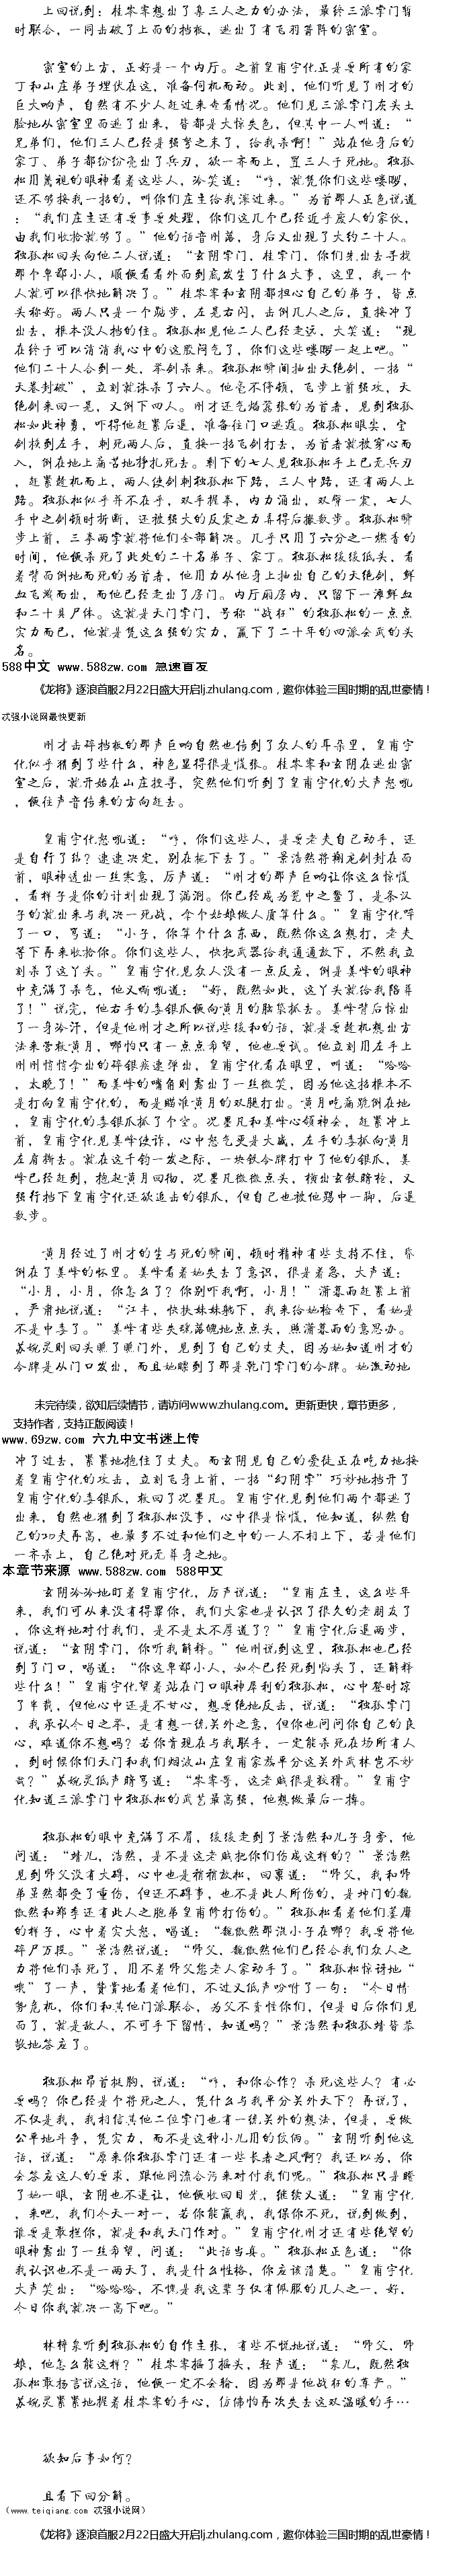 上回说到：桂岑寒想出了集三人之力的办法，最终三派掌门暂
时联合，一同击破了上面的挡板，逃出了有飞羽箭阵的密室。
密室的上方，正好是一个内厅。之前皇甫宇化正是要所有的家
丁和山庄弟子埋伏在这，准备伺机而动。此刻，他们听见了刚才的
巨大响声，自然有不少人赶过来查看情况。他们见三派掌门灰头土
脸地从密室里面逃了出来，皆都是大惊失色，但其中一人叫道：“
兄弟们，他们三人已经是强弩之末了，给我杀啊！”站在他身后的
家丁、弟子都纷纷亮出了兵刃，欲一齐而上，置三人于死地。独孤
松用蔑视的眼神看着这些人，冷笑道：“哼，就凭你们这些喽啰，
还不够接我一招的，叫你们庄主给我滚过来。”为首那人正色说道
：“我们庄主还有要事要处理，你们这几个已经近乎废人的家伙，
由我们收拾就够了。”他的话音刚落，身后又出现了大约二十人。
独孤松回头向他二人说道：“玄阴掌门，桂掌门，你们先出去寻找
那个卑鄙小人，顺便看看外面到底发生了什么大事，这里，我一个
人就可以很快地解决了。”桂岑寒和玄阴都担心自己的弟子，皆点
头称好。两人只是一个跨步，左晃右闪，击倒几人之后，直接冲了
出去，根本没人挡的住。独孤松见他二人已经走远，大笑道：“现
在终于可以消消我心中的这股闷气了，你们这些喽啰一起上吧。”
他们二十人合到一处，举剑杀来。独孤松瞬间抽出天绝剑，一招“
天卷封破”，立刻就诛杀了六人。他毫不停顿，飞步上前强攻，天
绝剑来回一晃，又倒下四人。刚才还气焰嚣张的为首者，见到独孤
松如此神勇，吓得赶紧后退，准备往门口逃遁。独孤松眼尖，宝
剑换到左手，刺死两人后，直接一招飞剑打去，为首者就被穿心而
入，倒在地上痛苦地挣扎死去。剩下的七人见独孤松手上已无兵刃
，赶紧趁机而上，两人使剑刺独孤松下路，三人中路，还有两人上
路。独孤松似乎并不在乎，双手握拳，内力涌出，双臂一震，七人
手中之剑顿时折断，还被强大的反震之力弄得后撤数步。独孤松瞬
步上前，三拳两掌就将他们全部解决。几乎只用了六分之一燃香的
时间，他便杀死了此处的二十名弟子、家丁。独孤松缓缓低头，看
着背面倒地而死的为首者，他用力从他身上抽出自己的天绝剑，鲜
血飞溅而出，而他已经走出了房门。内厅厢房内，只留下一滩鲜血
和二十具尸体。这就是天门掌门，号称“战狂”的独孤松的一点点
实力而已，他就是凭这么强的实力，赢下了二十年的四派会武的头
名。
588中文 www.588zw.com 急速首发
《龙将》逐浪首服2月22日盛大开启lj.zhulang.com，邀你体验三国时期的乱世豪情！
忒强小说网最快更新
刚才击碎挡板的那声巨响自然也传到了众人的耳朵里，皇甫宇
化似乎猜到了些什么，神色显得很是慌张。桂岑寒和玄阴在逃出密
室之后，就开始在山庄搜寻，突然他们听到了皇甫宇化的大声怒吼
，便往声音传来的方向赶去。
皇甫宇化怒吼道：“哼，你们这些人，是要老夫自己动手，还
是自行了结？速速决定，别在拖下去了。”景浩然将翔龙剑封在面
前，眼神透出一丝寒意，厉声道：“刚才的那声巨响让你这么惊慌
，看样子是你的计划出现了漏洞。你已经成为瓮中之鳖了，是条汉
子的就出来与我决一死战，拿个姑娘做人质算什么。”皇甫宇化啐
了一口，骂道：“小子，你算个什么东西，既然你这么想打，老夫
等下再来收拾你。你们这些人，快把武器给我通通放下，不然我立
刻杀了这丫头。”皇甫宇化见众人没有一点反应，倒是姜峰的眼神
中充满了杀气，他又嘶吼道：“好，既然如此，这丫头就给我陪葬
了！”说完，他右手的喜银爪便向黄月的脑袋抓去。姜峰背后惊出
了一身冷汗，但是他刚才之所以说些缓和的话，就是要趁机想出方
法来营救黄月，哪怕只有一点点希望，他也要试。他立刻用左手上
刚刚悄悄拿出的碎银疾速弹出，皇甫宇化看在眼里，叫道：“哈哈
，太晚了！”而姜峰的嘴角则露出了一丝微笑，因为他这招根本不
是打向皇甫宇化的，而是瞄准黄月的双腿打出。黄月吃痛跪倒在地
，皇甫宇化的喜银爪抓了个空。况墨凡和姜峰心领神会，赶紧冲上
前，皇甫宇化见姜峰使诈，心中怒气更是大盛，左手的喜抓向黄月
左肩撕去。就在这千钧一发之际，一块铁令牌打中了他的银爪，姜
峰已经赶到，抱起黄月回撤，况墨凡微微点头，横出玄铁暗枪，又
强行挡下皇甫宇化还欲追击的银爪，但自己也被他踢中一脚，后退
数步。
黄月经过了刚才的生与死的瞬间，顿时精神有些支持不住，昏
倒在了姜峰的怀里。姜峰看着她失去了意识，很是着急，大声道：
“小月，小月，你怎么了？你别吓我啊，小月！”潇暮雨赶紧上前
，严肃地说道：“江丰，快扶妹妹躺下，我来给她检查下，看她是
不是中毒了。”姜峰有些失魂落魄地点点头，照潇暮雨的意思办。
苏婉灵则回头瞧了瞧门外，见到了自己的丈夫，因为她知道刚才的
令牌是从门口发出，而且她瞟到了那是乾门掌门的令牌。她激动地
未完待续，欲知后续情节，请访问www.zhulang.com。更新更快，章节更多，
支持作者，支持正版阅读！
www.69zw.com 六九中文书迷上传
冲了过去，紧紧地抱住了丈夫。而玄阴见自己的爱徒正在吃力地接
着皇甫宇化的攻击，立刻飞身上前，一招“幻阴掌”巧妙地挡开了
皇甫宇化的喜银爪，救回了况墨凡。皇甫宇化见到他们两个都逃了
出来，自然也猜到了独孤松没事，心中很是惊慌，他知道，纵然自
己的功夫再高，也最多不过和他们之中的一人不相上下，若是他们
一齐杀上，自己绝对死无葬身之地。
本章节来源 www.588zw.com 588中文
玄阴冷冷地盯着皇甫宇化，厉声说道：“皇甫庄主，这么些年
来，我们可从来没有得罪你，我们大家也是认识了很久的老朋友了
，你这样地对付我们，是不是太不厚道了？”皇甫宇化后退两步，
说道：“玄阴掌门，你听我解释。”他刚说到这里，独孤松也已经
到了门口，喝道：“你这卑鄙小人，如今已经死到临头了，还解释
些什么！”皇甫宇化望着站在门口眼神犀利的独孤松，心中登时凉
了半截，但他心中还是不甘心，想要绝地反击，说道：“独孤掌门
，我承认今日之举，是有想一统关外之意，但你也问问你自己的良
心，难道你不想吗？若你肯现在与我联手，一定能杀死在场所有人
，到时候你们天门和我们烟波山庄皇甫家族平分这关外武林岂不妙
哉？”苏婉灵低声暗骂道：“岑寒哥，这老贼很是狡猾。”皇甫宇
化知道三派掌门中独孤松的武艺最高强，他想做最后一搏。
独孤松的眼中充满了不屑，缓缓走到了景浩然和儿子身旁，他
问道：“靖儿，浩然，是不是这老贼把你们伤成这样的？”景浩然
见到师父没有大碍，心中也是稍稍放松，回禀道：“师父，我和师
弟虽然都受了重伤，但还不碍事，也不是此人所伤的，是坤门的魏
傲然和郑季还有此人之胞弟皇甫修打伤的。”独孤松看着他们萎靡
的样子，心中着实大怒，喝道：“魏傲然那混小子在哪？我要将他
碎尸万段。”景浩然说道：“师父，魏傲然他们已经合我们众人之
力将他们杀死了，用不着师父您老人家动手了。”独孤松惊讶地“
哦”了一声，赞赏地看着他们，不过又低声吩咐了一句：“今日情
势危机，你们和其他门派联合，为父不责怪你们，但是日后你们见
面了，就是敌人，不可手下留情，知道吗？”景浩然和独孤靖皆恭
敬地答应了。
独孤松昂首挺胸，说道：“哼，和你合作？杀死这些人？有必
要吗？你已经是个将死之人，凭什么与我平分关外天下？再说了，
不仅是我，我相信其他二位掌门也有一统关外的想法，但是，要做
公平地斗争，凭实力，而不是这种小儿用的伎俩。”玄阴听到他这
话，说道：“原来你独孤掌门还有一些长者之风啊？我还以为，你
会答应这人的要求，跟他同流合污来对付我们呢。”独孤松只是瞪
了她一眼，玄阴也不退让，他便收回目光，继续又道：“皇甫宇化
，来吧，我们今天一对一，若你能赢我，我保你不死，说到做到，
谁要是敢拦你，就是和我天门作对。”皇甫宇化刚才还有些绝望的
眼神露出了一丝希望，问道：“此话当真。”独孤松正色道：“你
我认识也不是一两天了，我是什么性格，你应该清楚。”皇甫宇化
大声笑出：“哈哈哈，不愧是我这辈子仅有佩服的几人之一，好，
今日你我就决一高下吧。”
林梓泉听到独孤松的自作主张，有些不悦地说道：“师父，师
娘，他怎么能这样？”桂岑寒摇了摇头，轻声道：“泉儿，既然独
孤松敢扬言说这话，他便一定不会输，因为那是他战狂的尊严。”
苏婉灵紧紧地握着桂岑寒的手心，仿佛怕再次失去这双温暖的手…
欲知后事如何？
且看下回分解。
（www.teiqiang.com 忒强小说网）
《龙将》逐浪首服2月22日盛大开启lj.zhulang.com，邀你体验三国时期的乱世豪情！